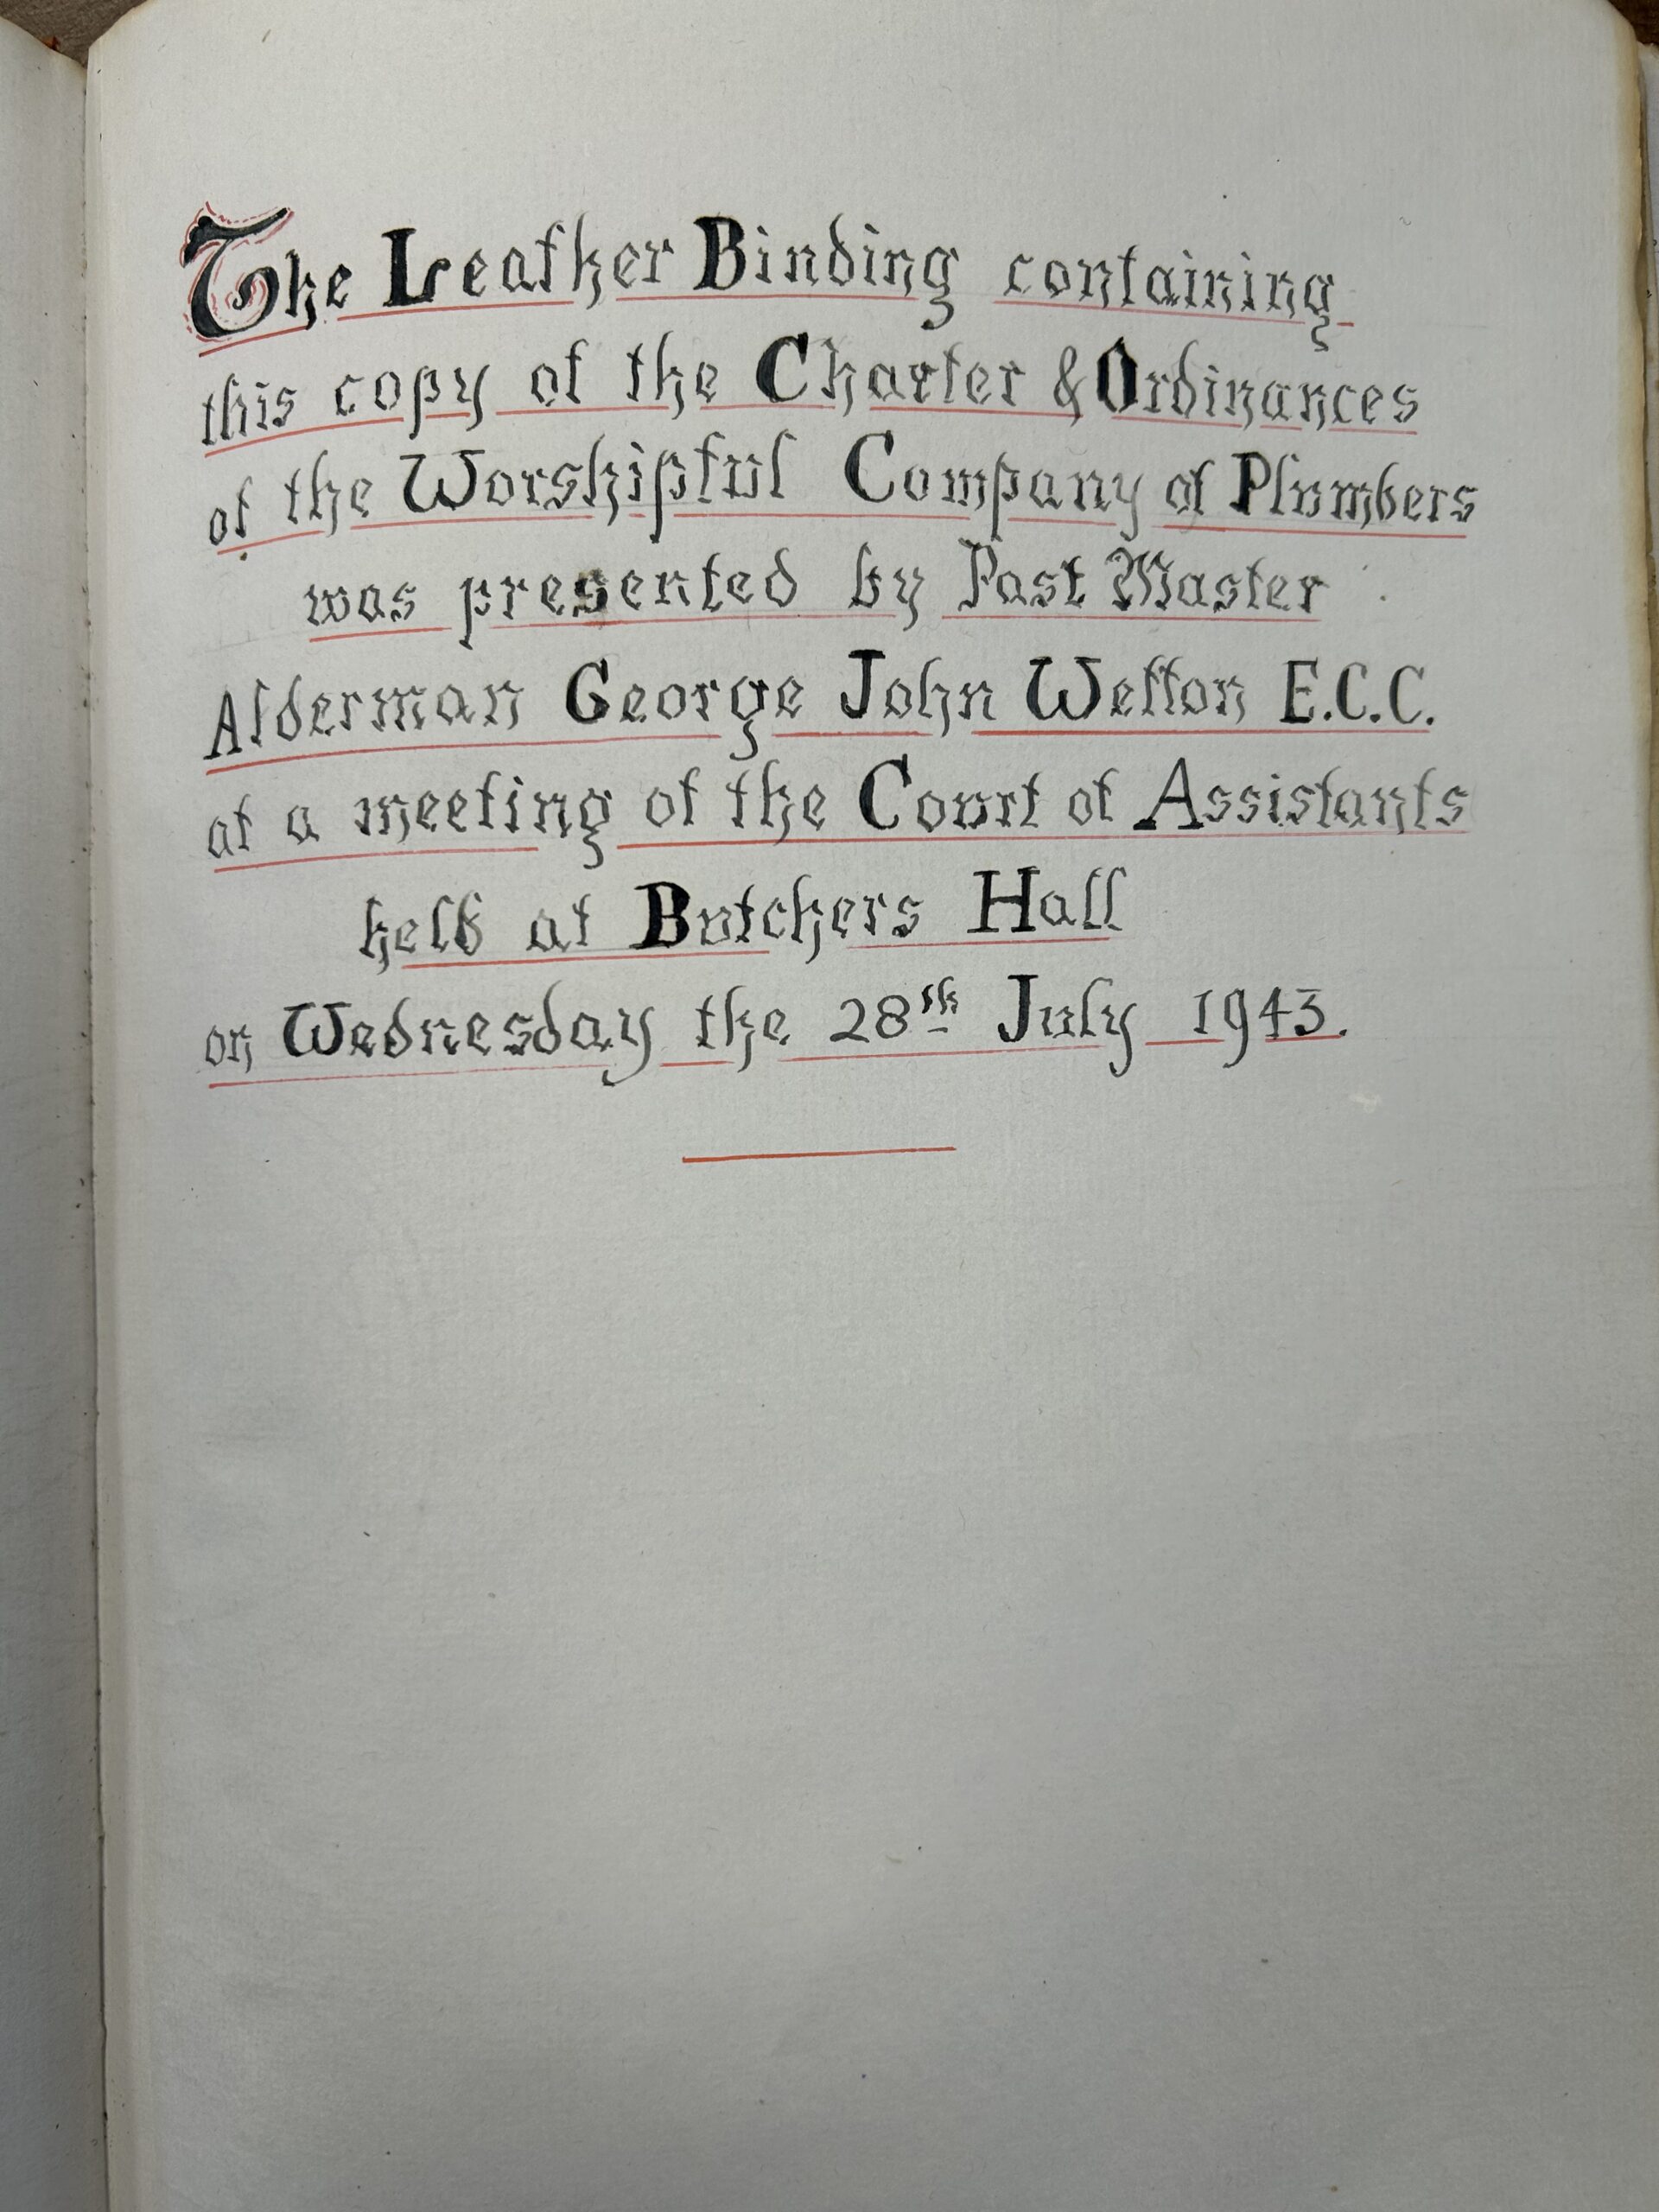 The Leather Binding containing
this copy of the Charter & Ordinances
of the Worshipful Company of Plumbers
was presented by Past Master
Alderman George John Wetton E.C.C.
at a meeting of the Court of Assistants
held at Butchers Hall
on Wednesday the 28th July 1943.